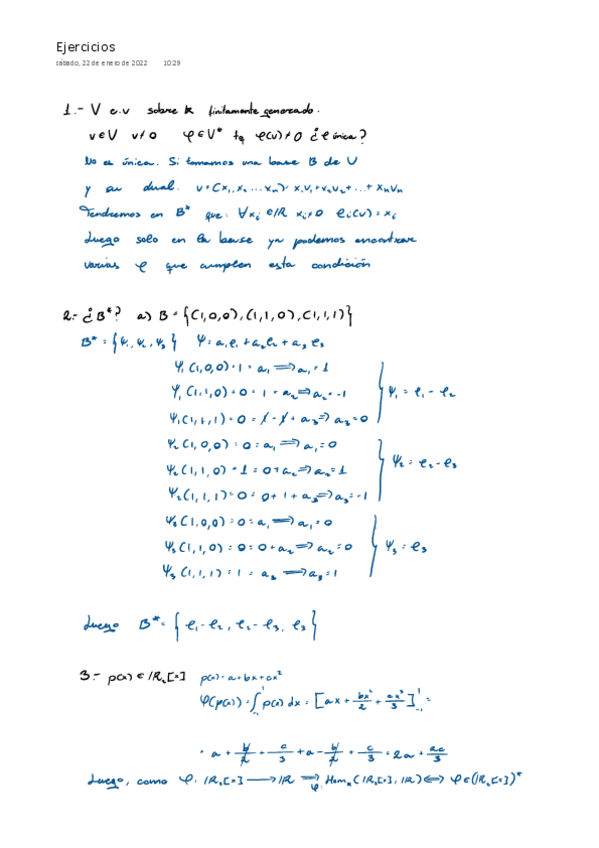 Ejercicios
sábado, 22 de enero de 2022 10:29
1.- V e.v sobre K finitamente generado.
v∈V v≠0 φ∈V* tq φ(v)≠0 ¿é única?
No es única. Si tomamos una base B de V
y su dual. v=(x₁, x₂ ... xₙ) = x₁v₁+x₂v₂+...+xₙvₙ
Tendremos en B* que: ∀xᵢ ∈ℝ xᵢ≠0 φᵢ(v)=xᵢ
Luego solo en la base ya podemos encontrar
varias φ que cumplen esta condición
2.- ¿B*? a) B = {(1,0,0),(1,1,0),(1,1,1)}
B* = {ψ₁, ψ₂, ψ₃} ψ = a₁e₁ + a₂e₂ + a₃e₃
ψ₁(1,0,0)=1=a₁ ⟹ a₁=1
ψ₁(1,1,0)=0=1+a₂ ⟹ a₂=-1 ψ₁ = e₁-e₂
ψ₁(1,1,1)=0=1-1+a₃ ⟹ a₃=0
ψ₂(1,0,0)=0=a₁ ⟹ a₁=0
ψ₂(1,1,0)=1=0+a₂ ⟹ a₂=1 ψ₂ = e₂-e₃
ψ₂(1,1,1)=0=0+1+a₃ ⟹ a₃=-1
ψ₃(1,0,0)=0=a₁ ⟹ a₁=0
ψ₃(1,1,0)=0=0+a₂ ⟹ a₂=0 ψ₃ = e₃
ψ₃(1,1,1)=1=a₃ ⟹ a₃=1
Luego B* = {e₁-e₂, e₂-e₃, e₃}
3.- p(x)∈ℝ₂[x] p(x)=a+bx+cx²
φ(p(x))=∫₋₁¹ p(x) dx = [ax + bx²/2 + cx³/3]₋₁¹ =
= a + b/2 + c/3 + a - b/2 + c/3 = 2a + 2c/3
Luego, como φ: ℝ₂[x] ⟶ ℝ ⟹ φ: Homₖ(ℝ₂[x], ℝ) ⟺ φ∈(ℝ₂[x])*